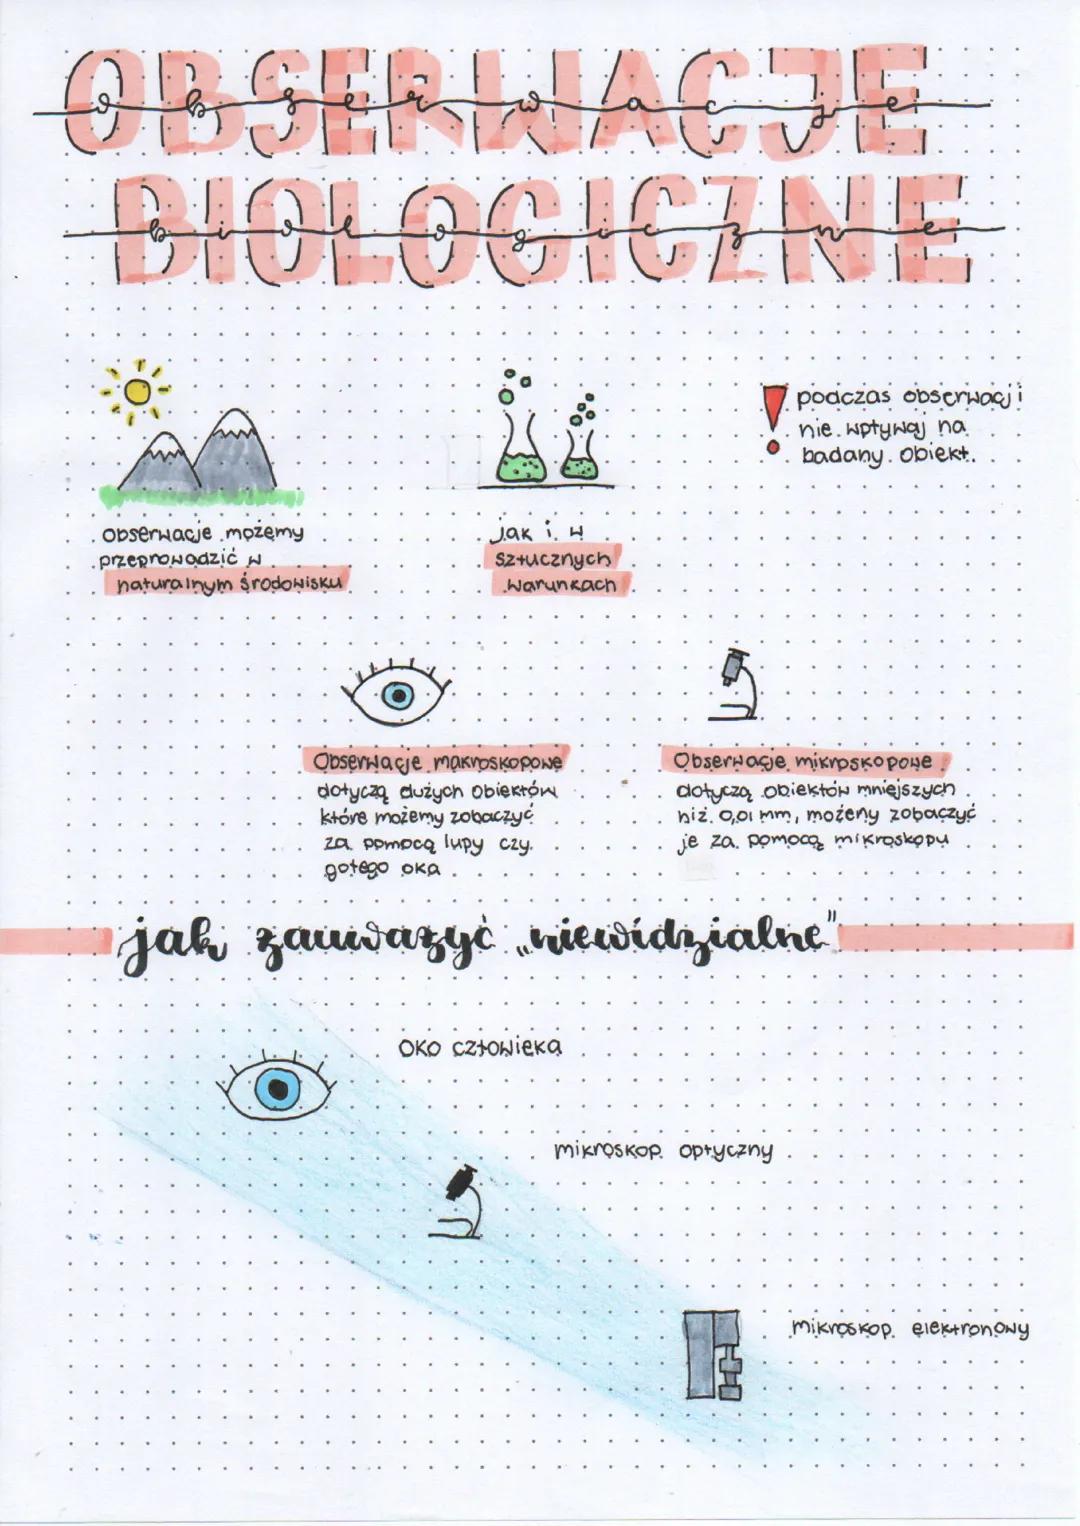 OBSERWACJE
obserwacje
BIOLOGICZNE
biologiczne
podczas obserwacji
nie wpływaj na
badany obiekt.
obserwacje możemy
przeprowadzić w
naturalnym środowisku
jak i w
sztucznych
warunkach
Obserwacje makroskopowe
dotyczą dużych obiektów
które możemy zobaczyć
za pomocą lupy czy
gołego oka
Obserwacje mikroskopowe
dotyczą obiektów mniejszych
niż 0,01 mm, możemy zobaczyć
je za pomocą mikroskopu
jak zauważyć „niewidzialne"
oko człowieka
mikroskop optyczny
mikroskop elektronowy